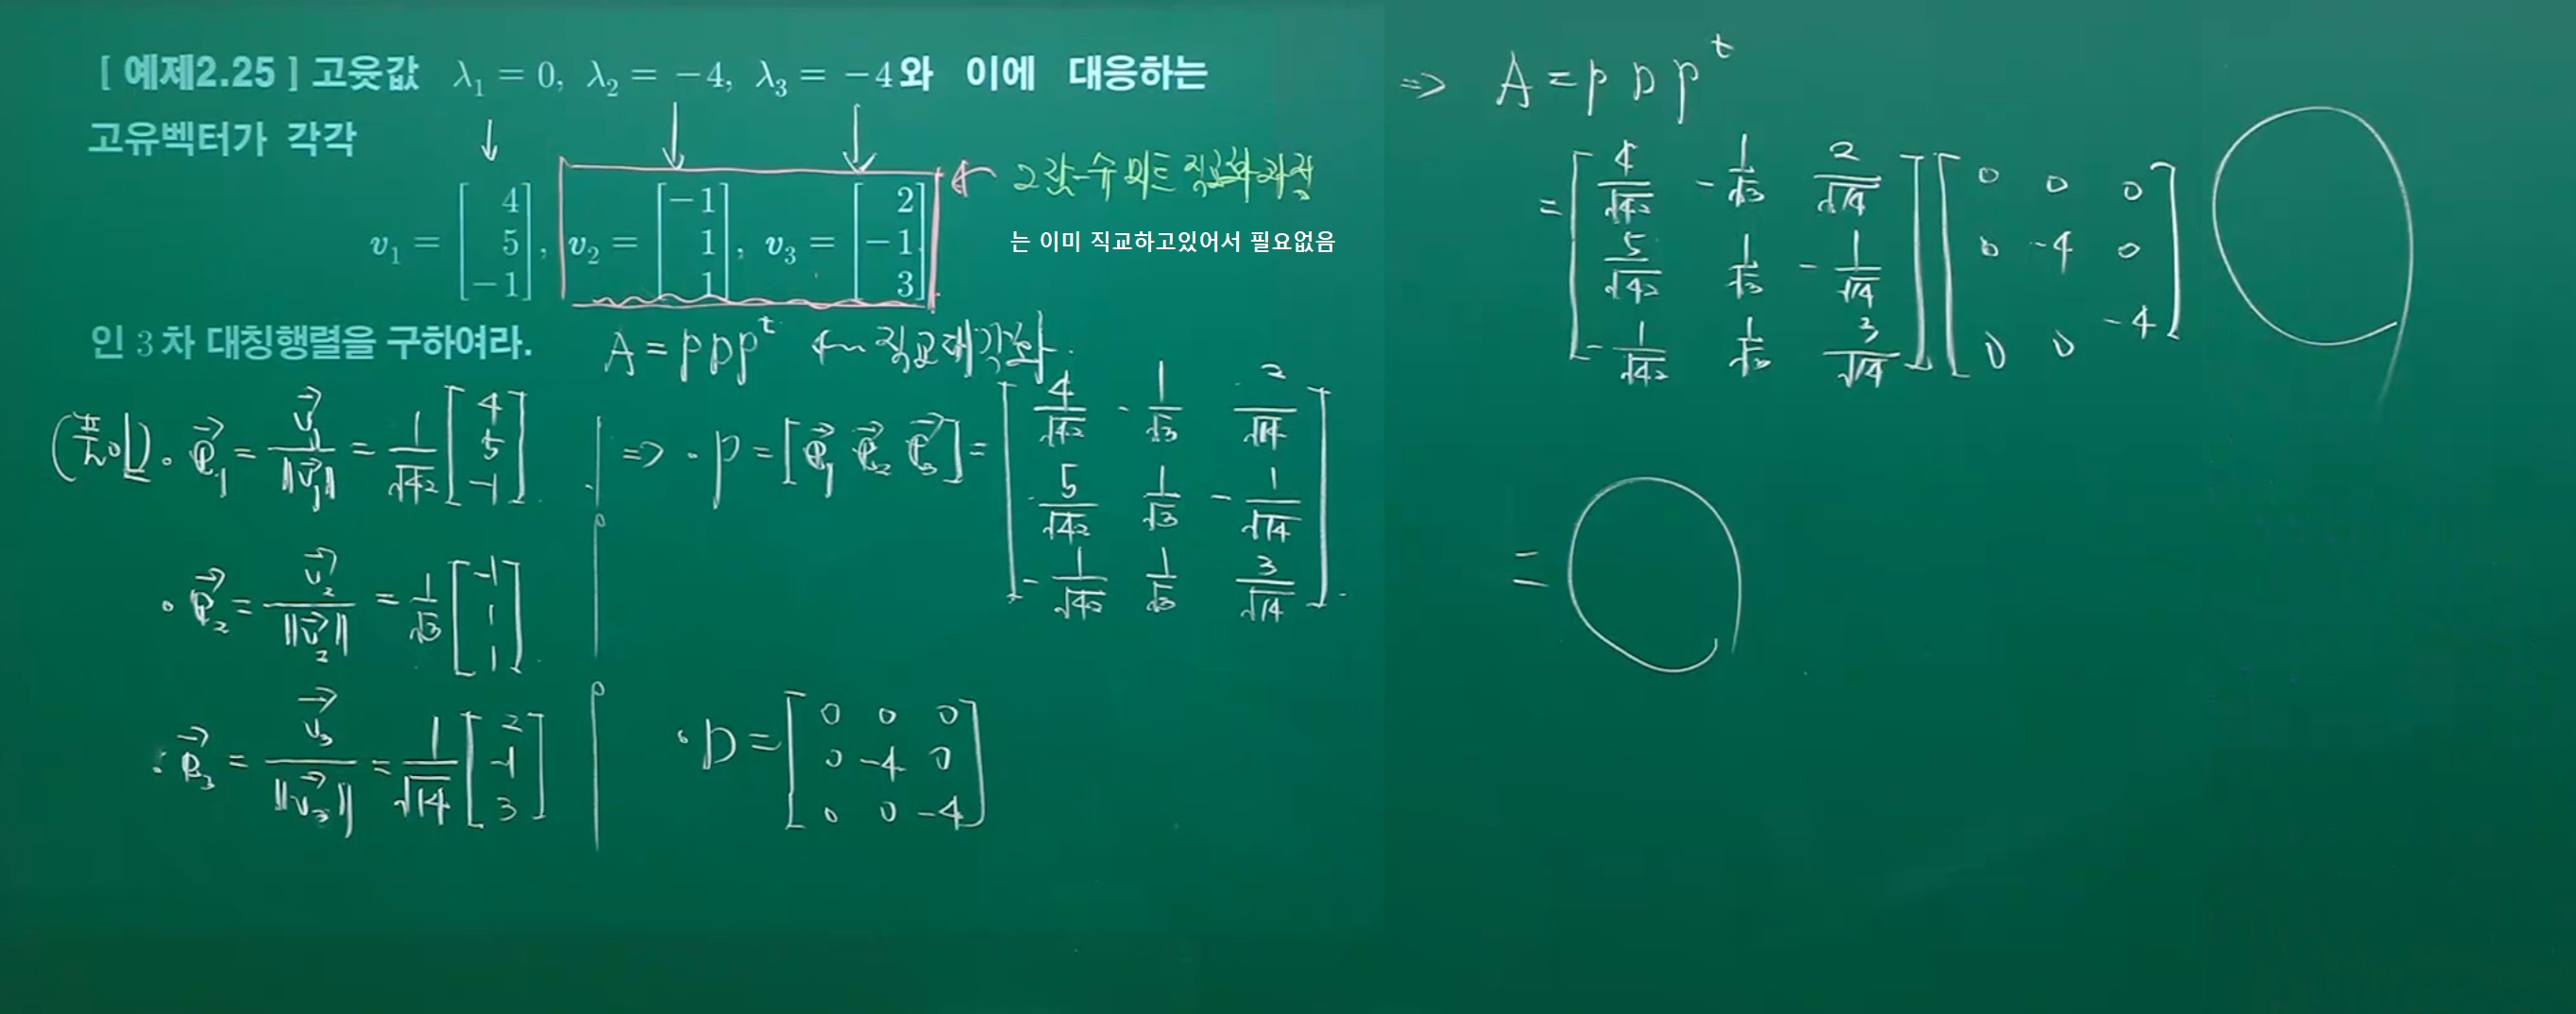 [ 예제2.25 ] 고윳값 λ₁ = 0, λ₂ = −4, λ₃ = −4와 이에 대응하는
고유벡터가 각각
v₁ = [4 5 −1], v₂ = [−1 1 1], v₃ = [2 −1 3].
그람-슈미트 직교화과정
는 이미 직교하고있어서 필요없음
인 3차 대칭행렬을 구하여라.
A = PDPᵗ ← 직교대각화.
(풀이) · P₁ = v₁/‖v₁‖ = 1/√42 [4 5 −1].
· P₂ = v₂/‖v₂‖ = 1/√3 [−1 1 1].
· P₃ = v₃/‖v₃‖ = 1/√14 [2 −1 3]
⇒ · P = [P₁ P₂ P₃] = [4/√42 −1/√3 2/√14
5/√42 1/√3 −1/√14
−1/√42 1/√3 3/√14].
· D = [0 0 0
0 −4 0
0 0 −4]
⇒ A = PDPᵗ
= [4/√42 −1/√3 2/√14
5/√42 1/√3 −1/√14
−1/√42 1/√3 3/√14] [0 0 0
0 −4 0
0 0 −4]
=